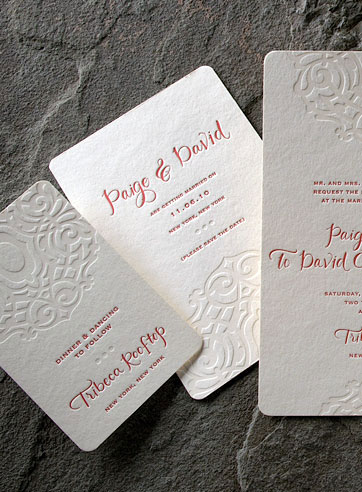 Paige & David
ARE GETTING MARRIED ON
11.06.10
NEW YORK, NEW YORK
(PLEASE SAVE THE DATE)
DINNER & DANCING
TO FOLLOW
Tribeca Rooftop
NEW YORK, NEW YORK
MR. AND MRS.
REQUEST THE
AT THE MAR
Paig
To David
SATURDAY,
TWO
A
Tri
NEW